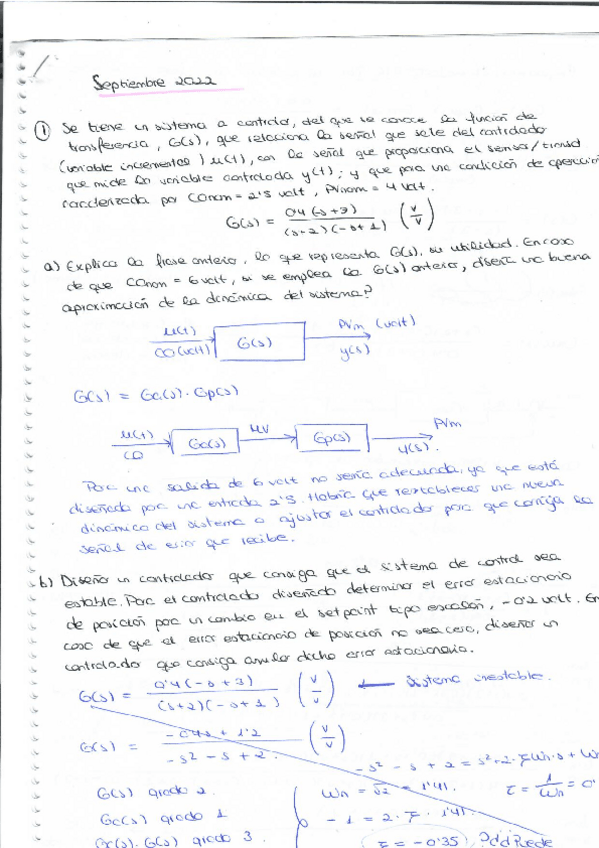 Septiembre 2022
① Se tiene un sistema a controlar, del que se conoce la función de
transferencia, G(s), que relaciona la señal que sale del controlador
(variable incremental) μ(t), con la señal que proporciona el sensor/
que mide la variable controlada y(t); y que para una condición de operación
caracterizada por COnom = 2'5 volt, PVnom = 4 volt.
G(s) = 0'4(-s+3) / (s+2)(-s+1) (V/V)
a) Explica la frase anterior, lo que representa G(s), su utilidad. En caso
de que COnom = 6 volt, si se emplea la G(s) anterior, ¿sería una buena
aproximación de la dinámica del sistema?
μ(t) PVm (volt)
CO(volt) G(s) y(s)
G(s) = Gc(s) · Gp(s)
μ(t) MV PVm
CO Gc(s) Gp(s) y(s).
Para una salida de 6 volt no sería adecuada, ya que está
diseñada para una entrada 2'5. Habría que restablecer una nueva
dinámica del sistema o ajustar el controlador para que corrija la
señal de error que recibe.
b) Diseñar un controlador que consiga que el sistema de control sea
estable. Para el controlador diseñado determina el error estacionario
de posición para un cambio en el setpoint tipo escalón, -0'2 volt. En
caso de que el error estacionario de posición no sea cero, diseñar un
controlador que consiga anular dicho error estacionario.
G(s) = 0'4(-s+3) / (s+2)(-s+1) (V/V) ← Sistema inestable.
G(s) = -0'4s + 1'2 / -s² - s + 2. (V/V)
-s² - s + 2 = s² + 2·ζ·Wn·s + Wn
G(s) grado 2. Wn = √2 = 1'41. τ = 1/Wn = 0'
Gc(s) grado 1 -1 = 2 · ζ · 1'41.
Gc(s)·G(s) grado 3. ζ = -0'35) Puede